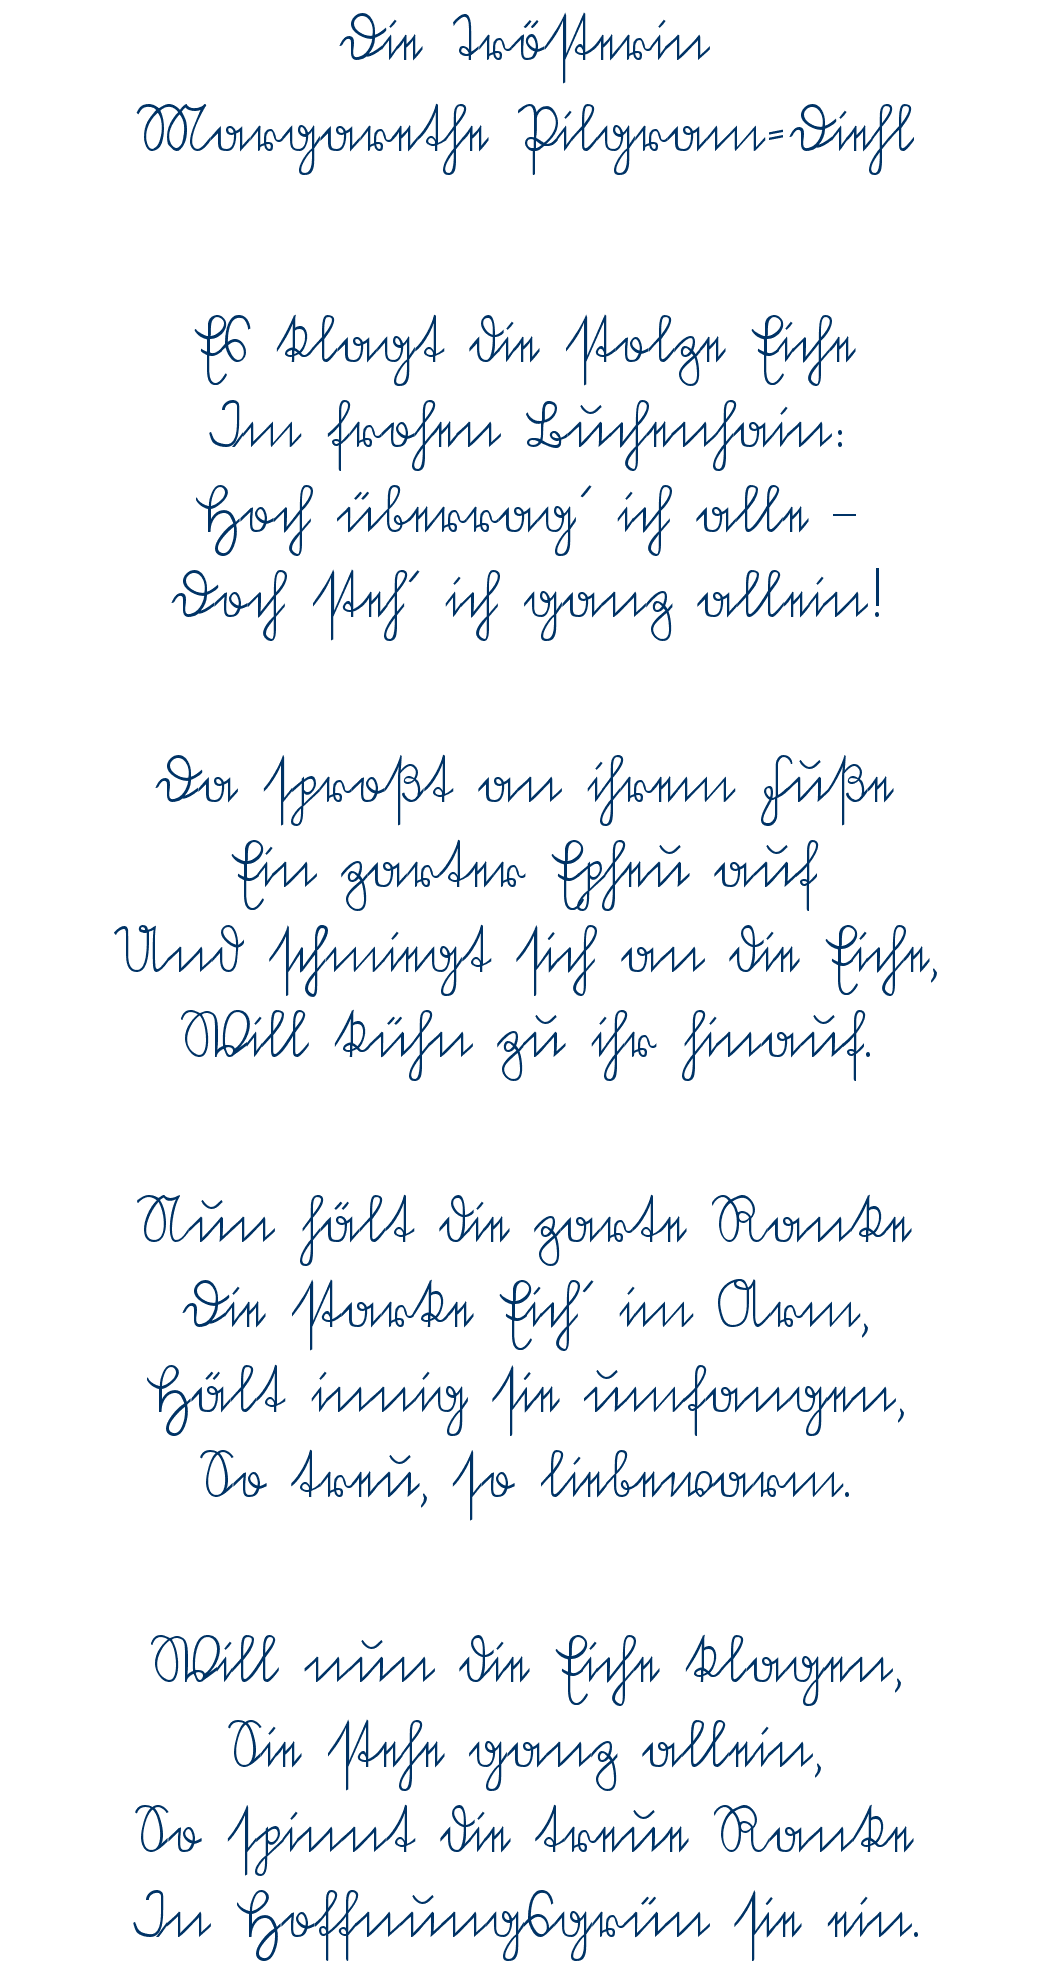 Die Trösterin
Margarethe Pilgram=Diehl
Es klagt die stolze Eiche
Im frohen Buchenhain:
Hoch überrag´ ich alle –
Doch steh´ ich ganz allein!
Da sproßt an ihrem Fuße
Ein zarter Epheu auf
Und schmiegt sich an die Eiche,
Will kühn zu ihr hinauf.
Nun hält die zarte Ranke
Die starke Eich´ im Arm,
Hält innig sie umfangen,
So treu, so liebewarm.
Will nun die Eiche klagen,
Sie stehe ganz allein,
So spinnt die treue Ranke
In Hoffnungsgrün sie ein.